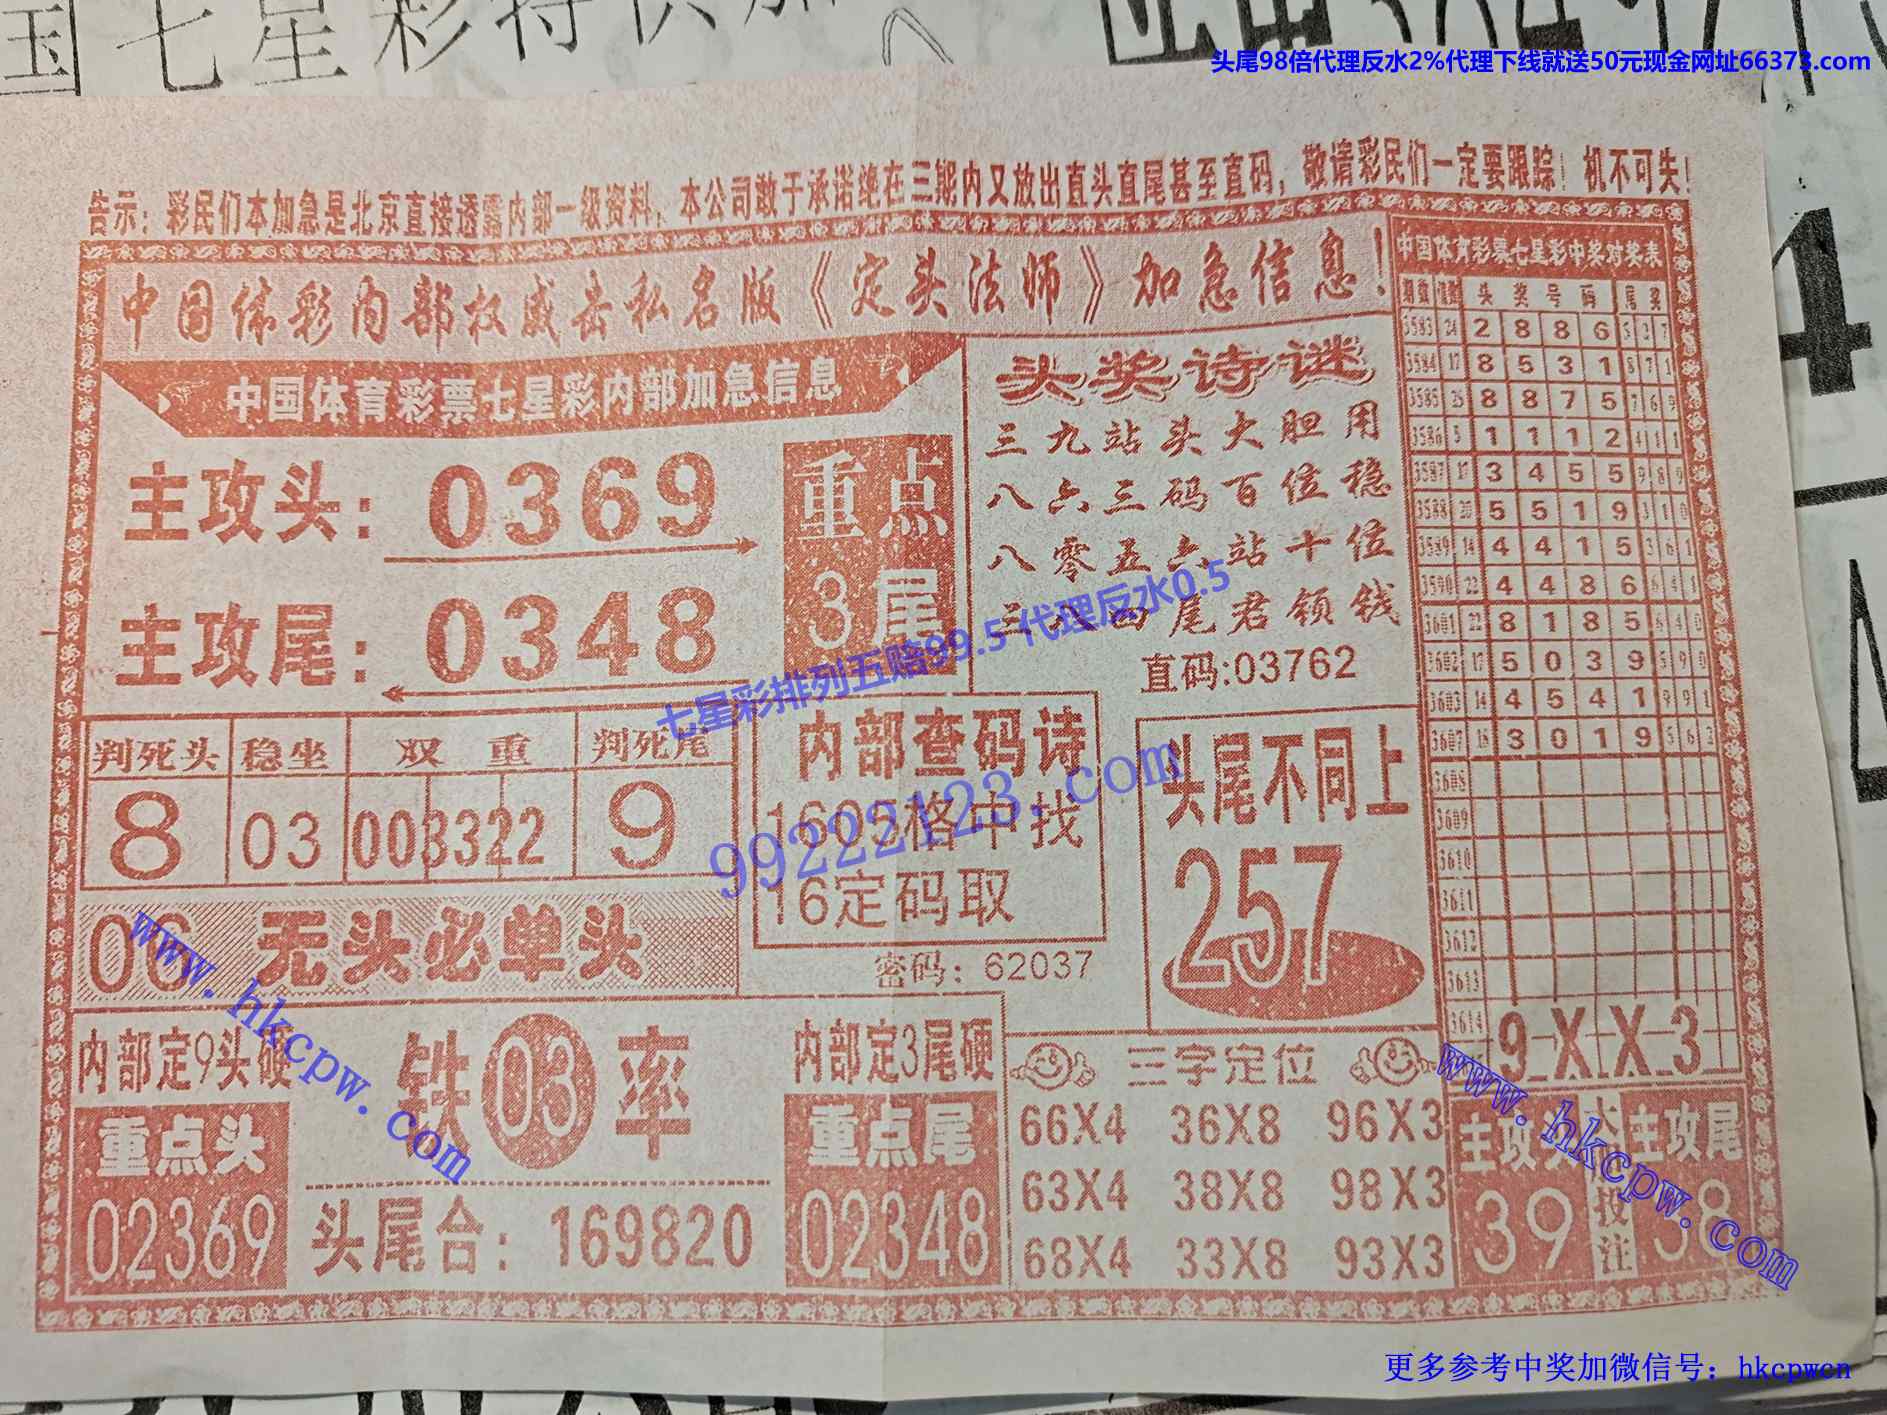 国七星彩特供加
头尾98倍代理反水2%代理下线就送50元现金网址66373.com
告示：彩民们本加急是北京直接透露内部一级资料，本公司敢于承诺绝在三期内又放出直头直尾甚至直码，敬请彩民们一定要跟踪！机不可失！
中国体彩内部权威公私名版《定头法师》加急信息！
中国体育彩票七星彩内部加急信息
主攻头：0369
主攻尾：0348
重点
3尾
头奖诗谜
三九站头大胆用
八六三码百位稳
八零五六站十位
三八四尾君领钱
直码:03762
七星彩排列五赔99.5 代理反水0.5
99222123.com
中国体育彩票七星彩中奖对奖表
期数 值数 头奖号码 尾奖
3583 24 2 8 8 6 5 3 7
3584 17 8 5 3 1 8 7 1
3585 28 8 7 5 7 6 9
3586 5 1 1 1 2 4 1 1
3587 17 3 4 5 5 9 8 9
3588 20 5 5 1 9 3 1 0
3589 14 4 4 1 5 3 6 1
22 4 4 8 6 6 4 1
3601 22 8 1 8 5 6 4 0
3602 17 5 0 3 9 5 9 0
3603 14 4 5 4 1 9 9 1
3607 3 0 1 9 5 6
3608
3609
3610
3611
3612
3613
3614
9 X X 3
判死头 稳坐 双重 判死尾
8 03 003322 9
06 无头必单头
内部查码诗
1605格中找
16定码取
密码：62037
头尾不同上
257
内部定9头硬
重点头
02369
铁03率
头尾合：169820
内部定3尾硬
重点尾
02348
三字定位
66X4 36X8 96X3
63X4 38X8 98X3
68X4 33X8 93X3
主攻头
39
投注
主攻尾
38
www.hkcpw.com
www.hkcpw.com
更多参考中奖加微信号：hkcpwcn